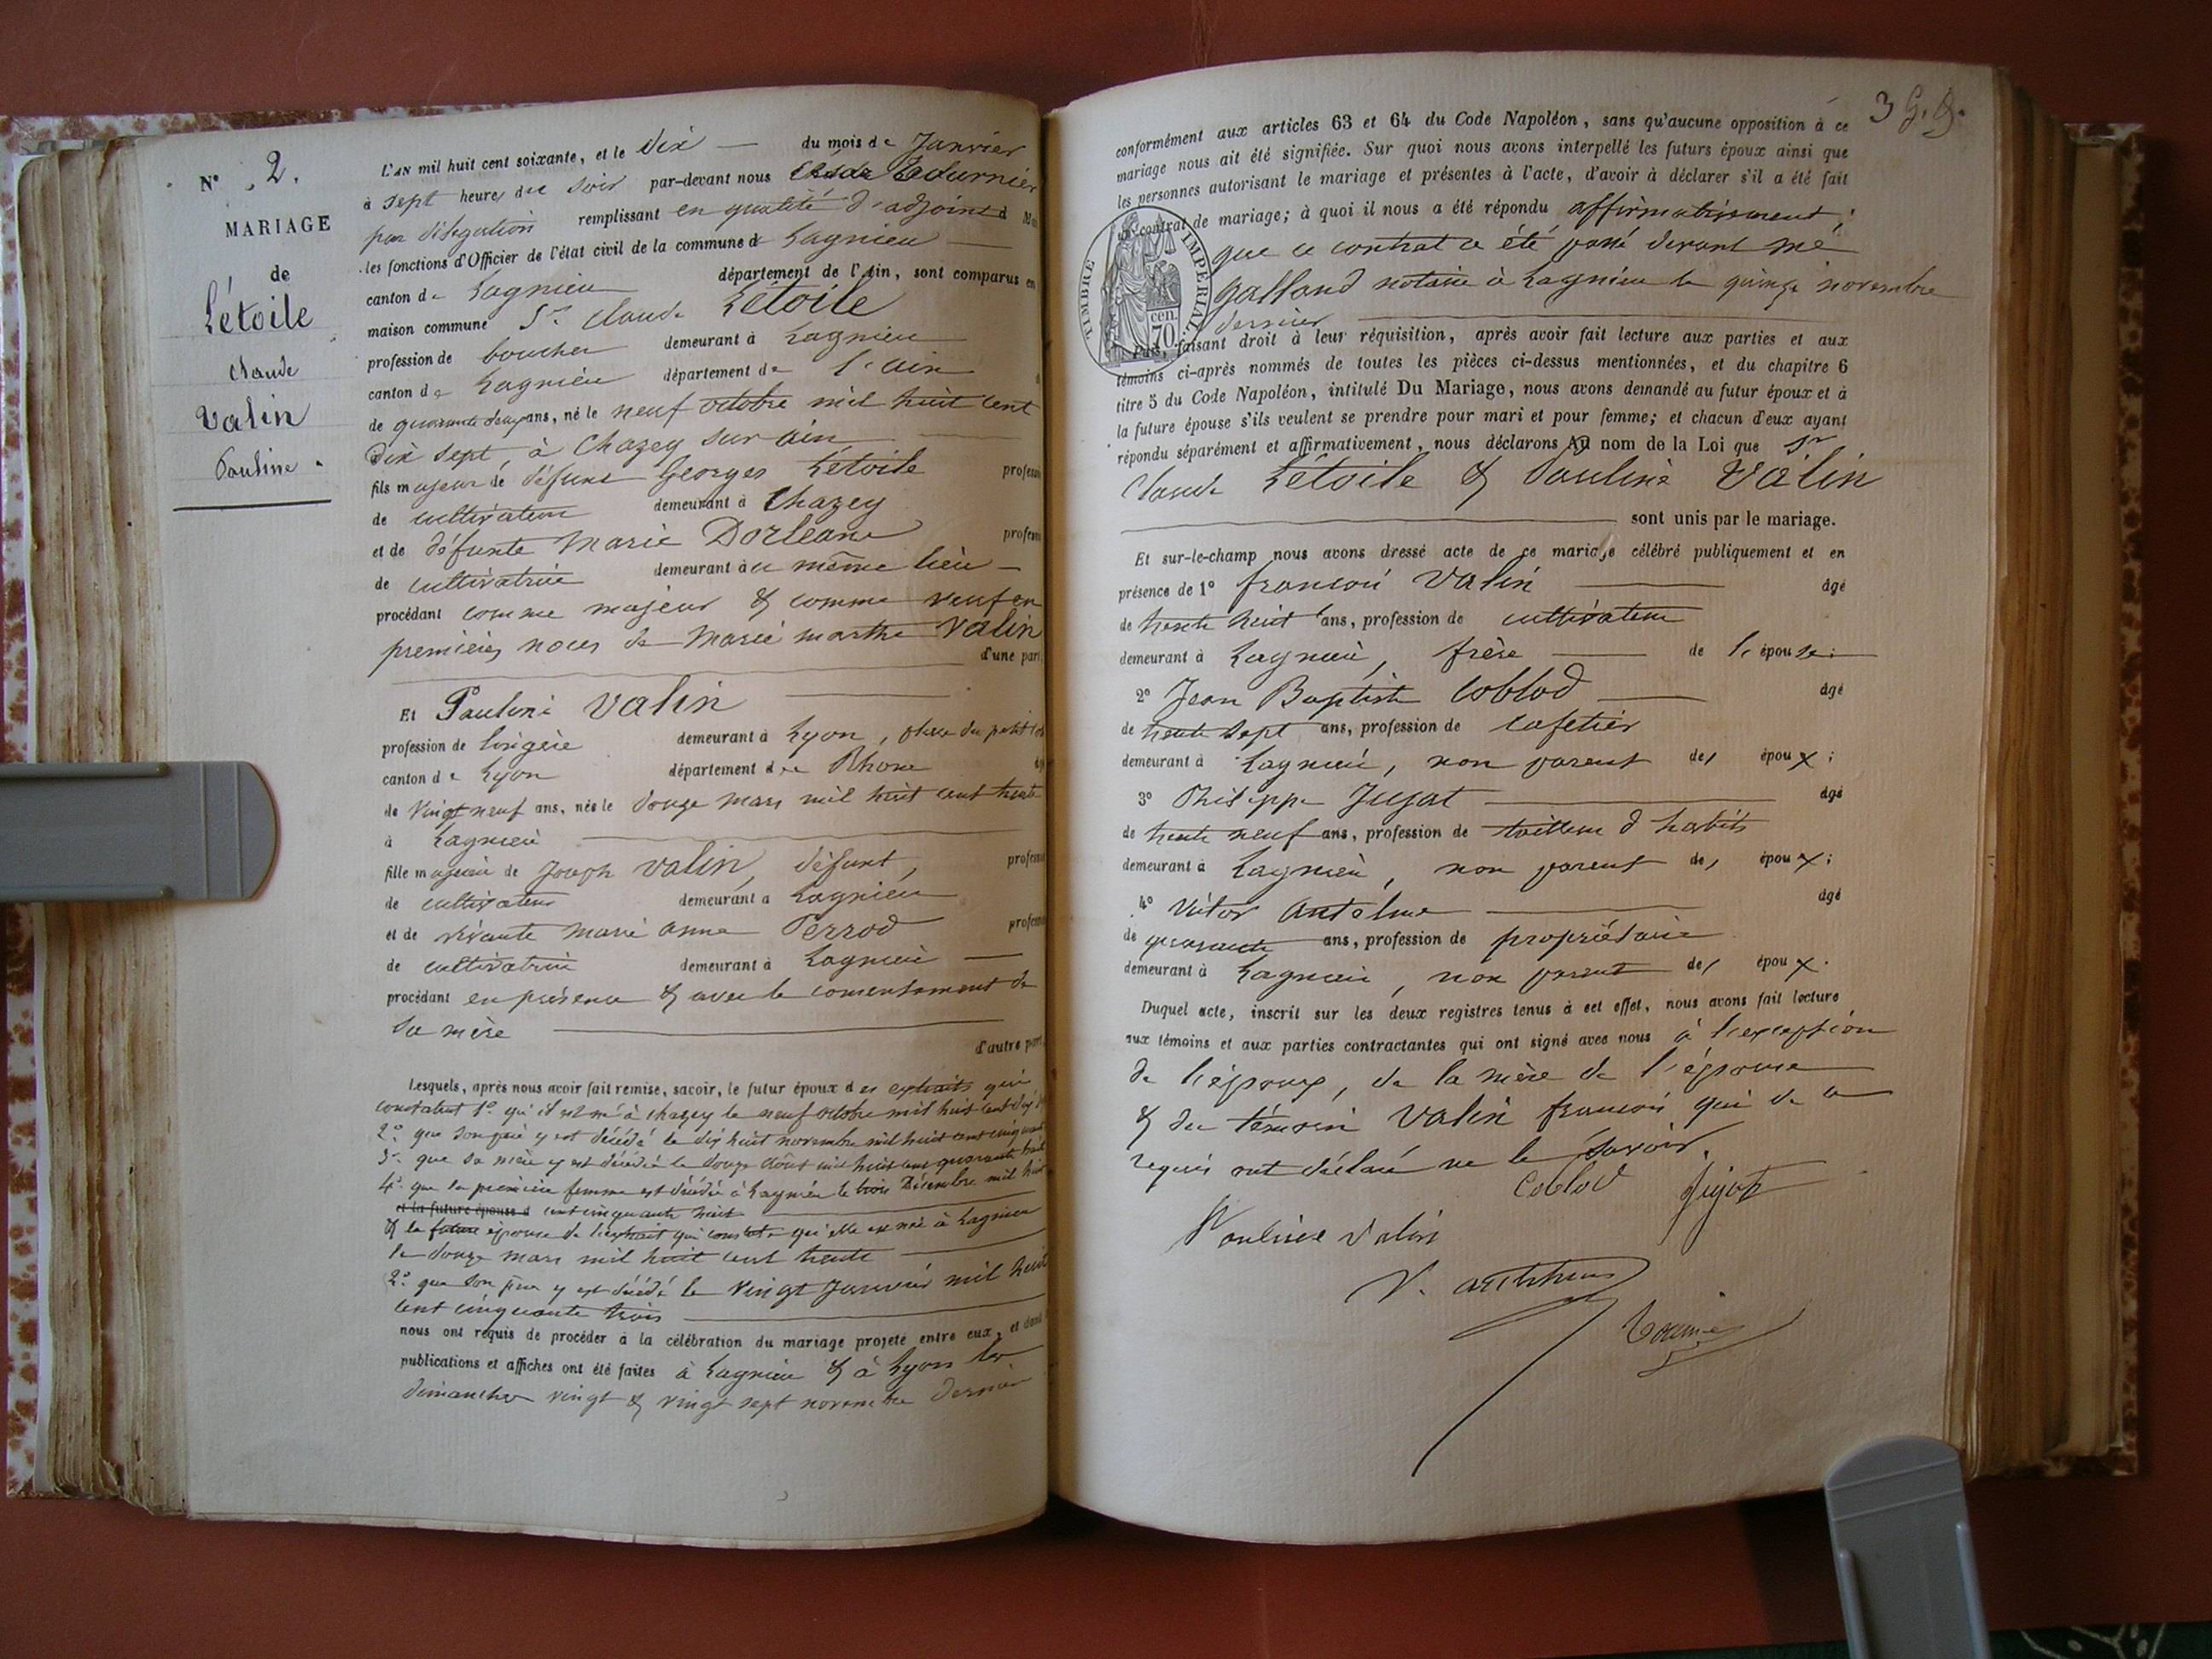 N° 2.
MARIAGE
de
Létoile
Claude
Valin
Pauline
L'AN mil huit cent soixante, et le dix du mois de Janvier
à sept heures du soir par-devant nous Tournier
par délégation remplissant en qualité d'adjoint
les fonctions d'Officier de l'état civil de la commune de Lagnieu
canton de Lagnieu département de l'Ain, sont comparus en
maison commune Sr. Claude Létoile
profession de boucher demeurant à Lagnieu
canton de Lagnieu département de l'ain
de quarante deux ans, né le neuf octobre mil huit cent
dix sept, à Chazey sur ain
fils majeur de défunt Georges Létoile profession
de cultivateur demeurant à Chazey
et de défunte Marie Dorleans profession
de cultivatrice demeurant au même lieu
procédant comme majeur & comme veuf en
premières noces de Marie marthe Valin
d'une part,
Et Pauline Valin
profession de lingère demeurant à Lyon, place du petit
canton de Lyon département du Rhone
de vingt neuf ans, née le douze mars mil huit cent trente
à Lagnieu
fille majeure de Joseph Valin, défunt, profession
de cultivateur demeurant à Lagnieu
et de vivante marie anne Perrod profession
de cultivatrice demeurant à Lagnieu
procédant en présence & avec le consentement de
sa mère
d'autre part,
Lesquels, après nous avoir fait remise, savoir, le futur époux des extraits qui
constatent 1° qu'il est né à chazey le neuf octobre mil huit cent dix
2° que son père y est décédé le dix huit novembre mil huit cent cinquante
3° que sa mère y est décédée le douze août mil huit cent quarante huit
4° que sa première femme est décédée à Lagnieu le trois Décembre mil huit
et la future épouse d cent cinquante huit
& la future épouse de l'extrait qui constate qu'elle est née à Lagnieu
le douze mars mil huit cent trente
2° que son père y est décédé le vingt Janvier mil huit
cent cinquante trois
nous ont requis de procéder à la célébration du mariage projeté entre eux, et dont
publications et affiches ont été faites à Lagnieu & à Lyon les
dimanches vingt & vingt sept novembre dernier
3 G. D.
conformément aux articles 63 et 64 du Code Napoléon, sans qu'aucune opposition à ce
mariage nous ait été signifiée. Sur quoi nous avons interpellé les futurs époux ainsi que
les personnes autorisant le mariage et présentes à l'acte, d'avoir à déclarer s'il a été fait
un contrat de mariage; à quoi il nous a été répondu affirmativement;
que ce contrat a été passé devant me
galland notaire à Lagnieu le quinze novembre
dernier
TIMBRE IMPÉRIAL
70 cen.
Puis, faisant droit à leur réquisition, après avoir fait lecture aux parties et aux
témoins ci-après nommés de toutes les pièces ci-dessus mentionnées, et du chapitre 6
titre 5 du Code Napoléon, intitulé Du Mariage, nous avons demandé au futur époux et à
la future épouse s'ils veulent se prendre pour mari et pour femme; et chacun d'eux ayant
répondu séparément et affirmativement, nous déclarons AU nom de la Loi que Sr
Claude Létoile & Pauline Valin
sont unis par le mariage.
Et sur-le-champ nous avons dressé acte de ce mariage célébré publiquement et en
présence de 1° françois Valin âgé
de trente huit ans, profession de cultivateur
demeurant à Lagnieu, frère de l'épouse;
2° Jean Baptiste Coblod âgé
de trente sept ans, profession de cafetier
demeurant à Lagnieu, non parent des époux;
3° Philippe Jujat âgé
de trente neuf ans, profession de tailleur d'habits
demeurant à Lagnieu, non parent des époux;
4° Victor Antelme âgé
de quarante ans, profession de propriétaire
demeurant à Lagnieu, non parent des époux.
Duquel acte, inscrit sur les deux registres tenus à cet effet, nous avons fait lecture
aux témoins et aux parties contractantes qui ont signé avec nous à l'exception
de l'époux, de la mère de l'épouse
& du témoin Valin françois qui de ce
requis ont déclaré ne le savoir.
Coblod Jujat
Pauline Valin
V. antelme